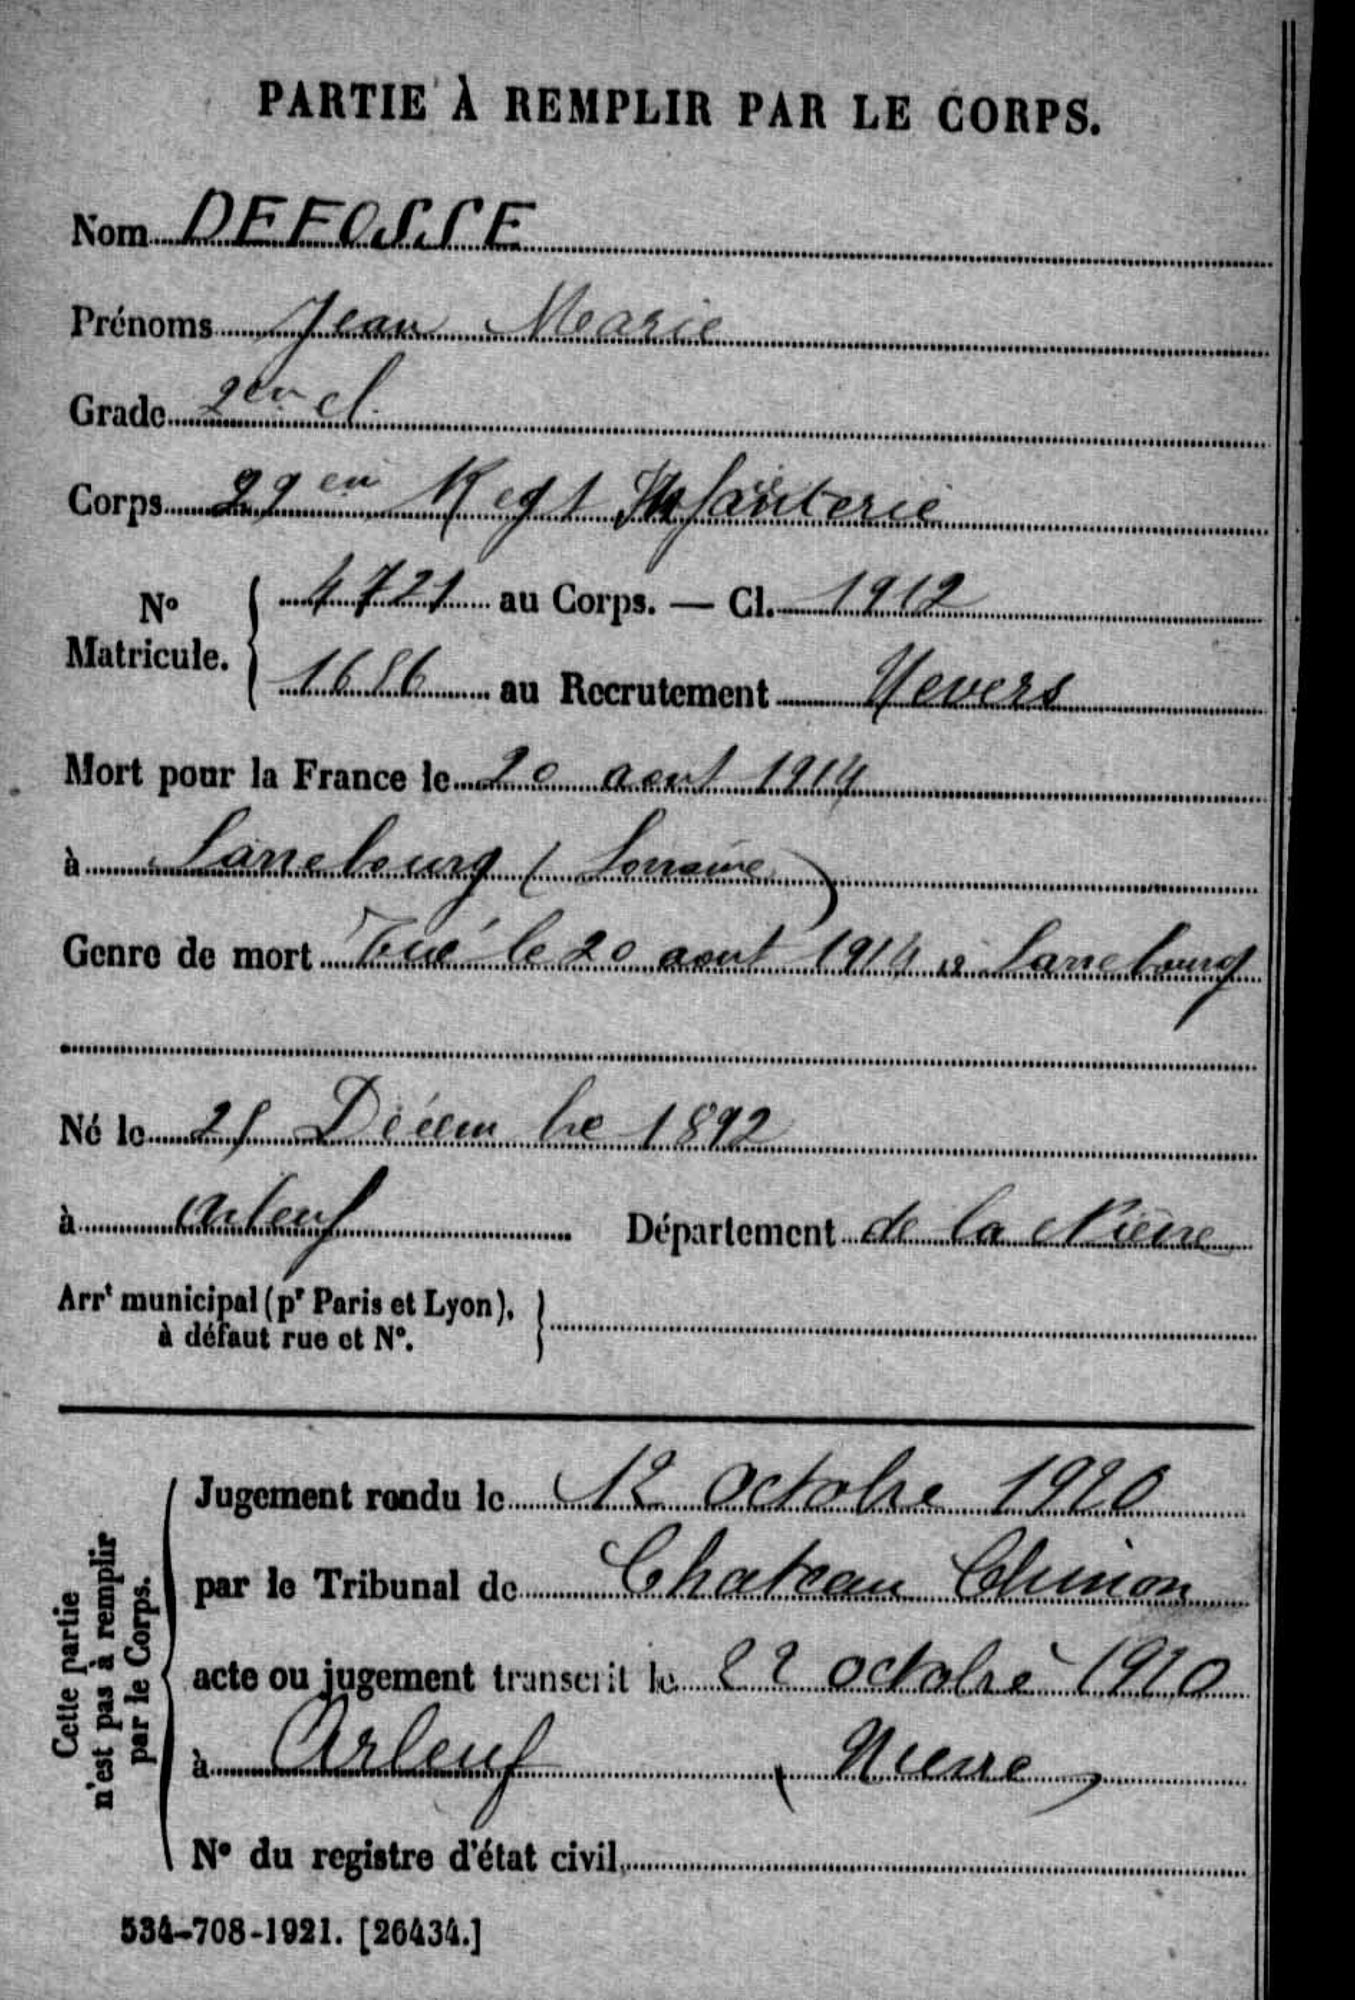 PARTIE À REMPLIR PAR LE CORPS.
Nom DEFOSSE
Prénoms Jean Marie
Grade 2em cl.
Corps 29em Regt Infanterie
No Matricule. 4721 au Corps. — Cl. 1912
1686 au Recrutement Nevers
Mort pour la France le 20 aout 1914
à Sarrebourg (Lorraine)
Genre de mort Tué le 20 aout 1914 à Sarrebourg
Né le 25 Décembre 1892
à Arleuf Département de la Nièvre
Arrt municipal (pr Paris et Lyon),
à défaut rue et No.
Cette partie
n'est pas à remplir
par le Corps.
Jugement rendu le 12 octobre 1920
par le Tribunal de Chateau Chinon
acte ou jugement transcrit le 22 octobre 1920
à Arleuf (Nievre)
No du registre d'état civil
534-708-1921. [26434.]